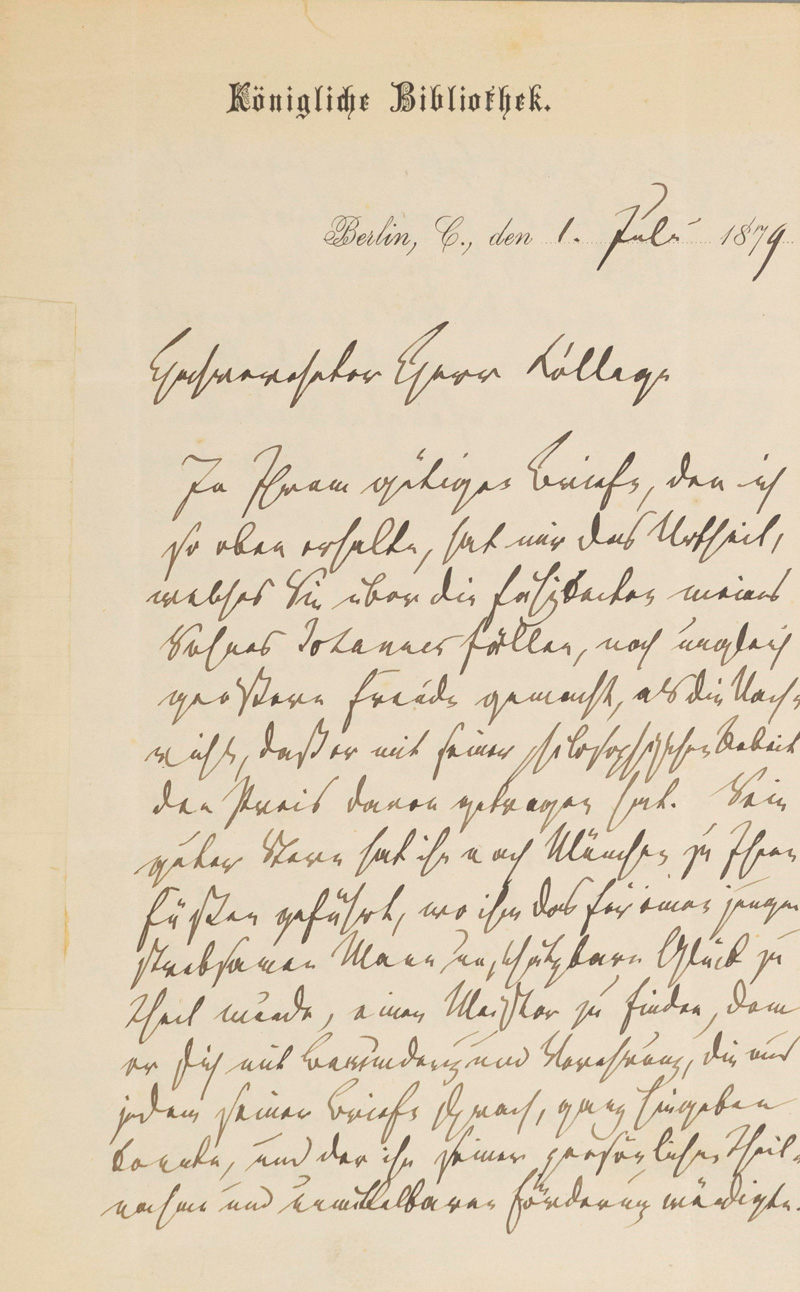 Königliche Bibliothek.
Berlin, C., den 1. Juli 1879
Hochverehrter Herr College
In Ihrem gütigen Briefe, den ich
so eben erhalte, hat mir das Urtheil,
welches Sie über die Fähigkeiten meines
Sohnes Johannes fällen, noch ungleich
größere Freude gemacht, als die Nach-
richt, daß er mit seiner philosophischen Arbeit
den Preis davon getragen hat. Sein
guter Stern hat ihn nach München zu Ihren
Füßen geführt, wo ihm das für einen jungen
strebsamen Mann unschätzbare Glück zu
Theil wurde, einen Meister zu finden, dem
er sich mit Bewunderung und Verehrung, die aus
jedem seiner Briefe sprach, ganz hingeben
konnte, und der ihn seiner persönlichen Theil-
nahme und unmittelbaren Förderung würdigte.